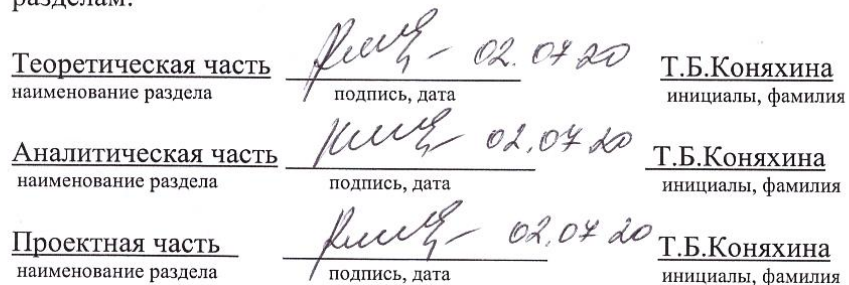 разделам:
Теоретическая часть 02.07.20 Т.Б.Коняхина
наименование раздела подпись, дата инициалы, фамилия
Аналитическая часть 02.07.20 Т.Б.Коняхина
наименование раздела подпись, дата инициалы, фамилия
Проектная часть 02.07.20 Т.Б.Коняхина
наименование раздела подпись, дата инициалы, фамилия